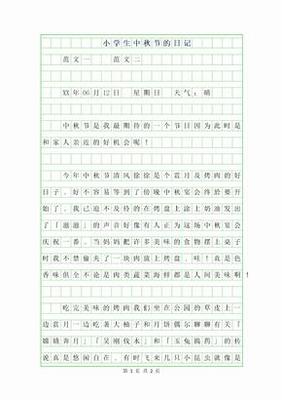 小学生中秋节的日记
范文一 范文二
XX年06月12日 星期日 天气:晴
中秋节是我最期待的一个节日因为此时是
和家人亲近的好机会呢!
今年中秋节清风徐徐是个赏月及烤肉的好
日子。好不容易等到了傍晚中秋宴会终於要开
始了。我已迫不及待的在烤盘上涂上奶油发出
了「滋滋」的声音好像有人正为这场中秋宴会
庆祝一番。当妈妈把许多美味的食物摆上桌子
时我不禁偷夹了一块肉放上烤盘。哇!真是色
香味俱全不论是肉类蔬菜海鲜都是人间美味啊!
吃完美味的烤肉我们坐在公园的草皮上一
边赏月一边吃著大柚子和月饼偶尔聊聊有关「
嫦娥奔月」「吴刚伐木」和「玉兔捣药」的传
说真是悠闲自在。有时飞来几只小昆虫就像是
第1页共2页